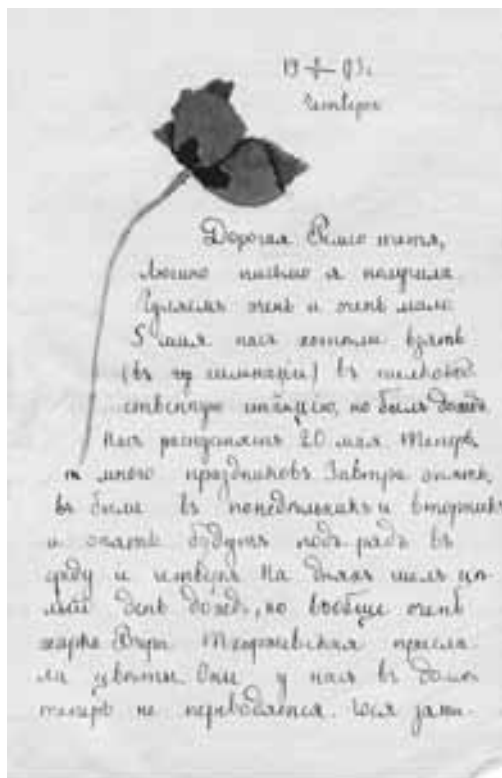 Четвергъ
Дорогая тетя,
письмо я получила
Гуляемъ очень и очень мало
5 мая насъ хотели взять
(въ гимназiи) въ шелковод
ственную станцiю, но былъ дождь
Насъ распускаютъ 20 мая. Теперь
много праздниковъ Завтра опять,
были въ понедѣльникъ и вторникъ
и опять будутъ подъ рядъ въ
среду и четвергъ На дняхъ шелъ цѣ
лый день дождь, но вообще очень
жарко Георгiевская присла
ла цвѣты. Они у насъ въ доме
теперь не переводятся.